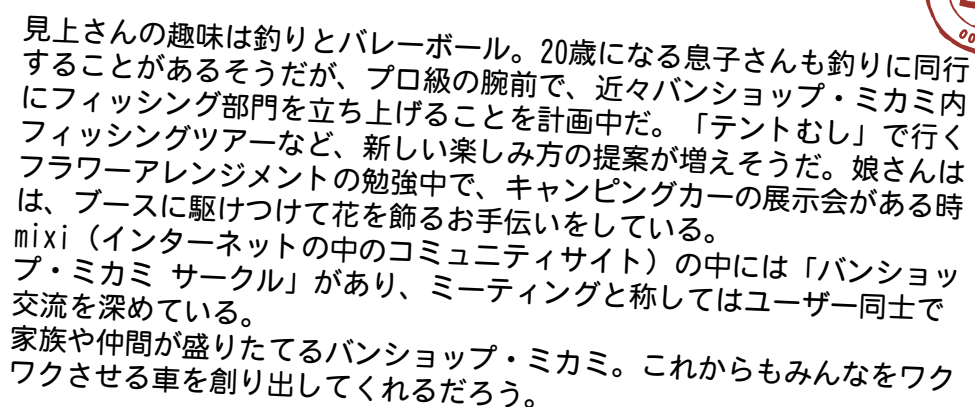 見上さんの趣味は釣りとバレーボール。20歳になる息子さんも釣りに同行
することがあるそうだが、プロ級の腕前で、近々バンショップ・ミカミ内
にフィッシング部門を立ち上げることを計画中だ。「テントむし」で行く
フィッシングツアーなど、新しい楽しみ方の提案が増えそうだ。娘さんは
フラワーアレンジメントの勉強中で、キャンピングカーの展示会がある時
は、ブースに駆けつけて花を飾るお手伝いをしている。
mixi（インターネットの中のコミュニティサイト）の中には「バンショッ
プ・ミカミ サークル」があり、ミーティングと称してはユーザー同士で
交流を深めている。
家族や仲間が盛りたてるバンショップ・ミカミ。これからもみんなをワク
ワクさせる車を創り出してくれるだろう。